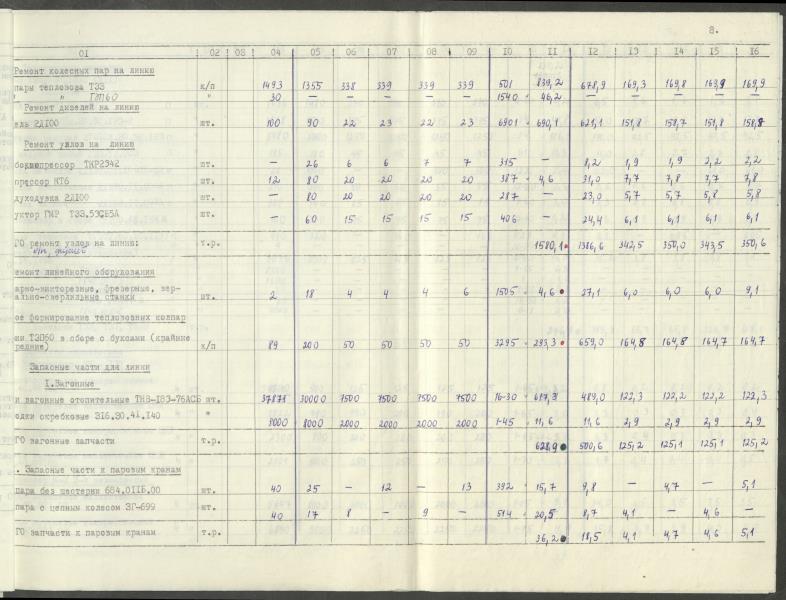 8.
01 02 03 04 05 06 07 08 09 10 11 12 13 14 15 16
Ремонт колесных пар на линию
пары тепловоза ТЭ3 к/п 1493 1355 338 339 339 339 501 839,2 678,9 169,3 169,8 169,9 169,9
" " ТЭП60 30 — — — — — 1540 46,2 — — — — —
Ремонт дизелей на линию
ель 2Д100 шт. 100 90 22 23 22 23 6901 690,1 621,1 151,8 158,7 151,8 158,8
Ремонт узлов на линию
бокомпрессор ТКР2342 шт. — 26 6 6 7 7 315 — 8,2 1,9 1,9 2,2 2,2
прессор КТ6 шт. 12 80 20 20 20 20 387 4,6 31,0 7,7 7,8 7,7 7,8
духодувка 2Д100 шт. — 80 20 20 20 20 287 — 23,0 5,7 5,7 5,8 5,8
уктор ГМР шт. — 60 15 15 15 15 406 — 24,4 6,1 6,1 6,1 6,1
ГО ремонт узлов на линию: т.р. 1580,1 1386,6 342,5 350,0 343,5 350,6
к/п, дизелей
емонт линейного оборудования
арно-винторезные, фрезерные, вер-
ально-сверлильные станки шт. 2 18 4 4 4 6 1505 4,6 27,1 6,0 6,0 6,0 9,1
ое формирование тепловозных колпар
ии ТЭП60 в сборе с буксами (крайние
редние) к/п 89 200 50 50 50 50 3295 293,3 659,0 164,8 164,8 164,7 164,7
Запасные части для линии
I.Вагонные
и вагонные отопительные шт. 37871 30000 7500 7500 7500 7500 16-30 617,3 489,0 122,3 122,2 122,2 122,3
одки скребковые 316.30.41.140 " 8000 8000 2000 2000 2000 2000 1-45 11,6 11,6 2,9 2,9 2,9 2,9
ГО вагонные запчасти т.р. 628,9 500,6 125,2 125,1 125,1 125,2
. Запасные части к паровым кранам
пара без шестерни 684.01СБ.00 шт. 40 25 — 12 — 13 392 15,7 9,8 — 4,7 — 5,1
пара с цепным колесом ЗГ-699 шт. 40 17 8 — 9 — 514 20,5 8,7 4,1 — 4,6 —
ГО запчасти к паровым кранам т.р. 36,2 18,5 4,1 4,7 4,6 5,1